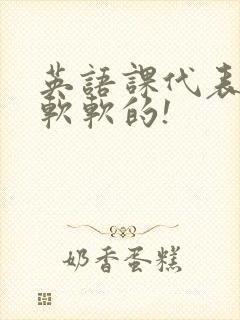 英語課代表
軟軟的!
奶香蛋糕